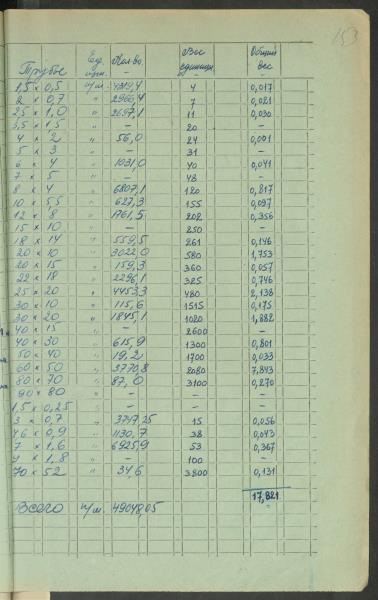 153
Трубы Ед. изм. Кол-во Вес единицы Общий вес
1,5 x 0,5 п/м. 4319,4 4 0,017
2 x 0,7 " 2966,4 7 0,021
2,5 x 1,0 " 2697,1 11 0,030
3,5 x 1,5 " — 20 —
4 x 2 " 56,0 24 0,001
5 x 3 " — 31 —
6 x 4 " 1031,0 40 0,041
7 x 5 " — 48 —
8 x 4 " 6807,1 120 0,817
10 x 5,5 " 627,3 155 0,097
12 x 8 " 1761,5 202 0,356
15 x 10 " — 250 —
18 x 14 " 559,5 261 0,146
20 x 10 " 3022,0 580 1,753
20 x 15 " 159,3 360 0,057
22 x 18 " 2296,1 325 0,746
25 x 20 " 4453,3 480 2,138
30 x 10 " 115,6 1515 0,175
30 x 20 " 1845,1 1020 1,882
40 x 15 " — 2600 —
40 x 30 " 615,9 1300 0,801
50 x 40 " 19,2 1700 0,033
60 x 50 " 3770,8 2080 7,843
80 x 70 " 87,0 3100 0,270
90 x 80 " — — —
1,5 x 0,25 " — — —
3 x 0,7 " 3747,25 15 0,056
4,6 x 0,9 " 1130,7 38 0,043
7 x 1,6 " 6925,9 53 0,367
9 x 1,8 " — 100 —
70 x 52 " 34,6 3800 0,131
17,821
Всего п/м. 49048,05